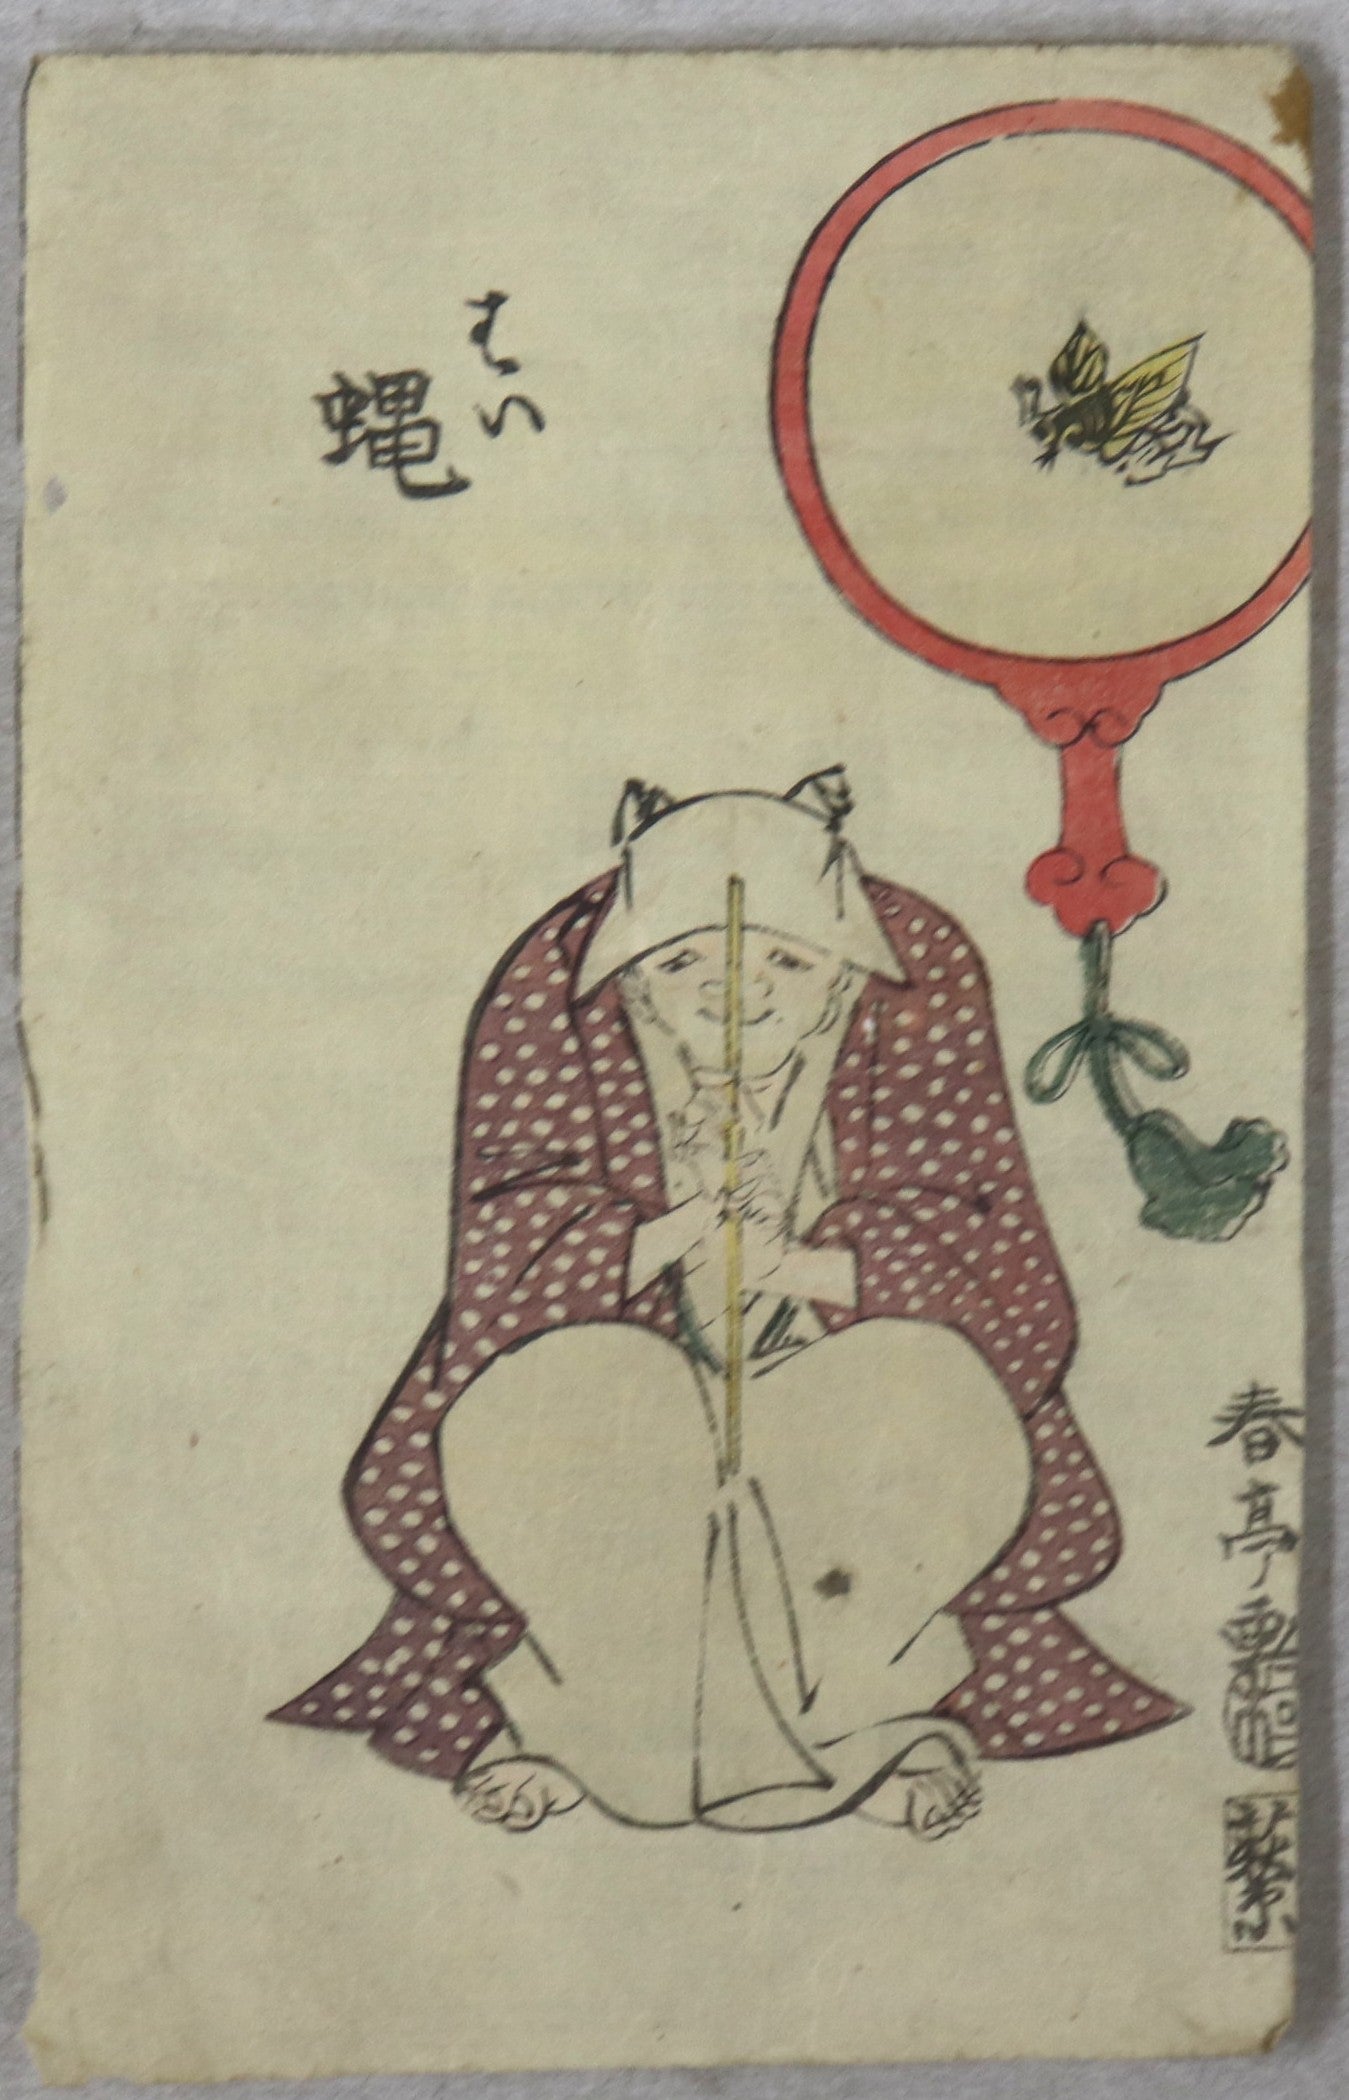 はい
蝿
春亭画